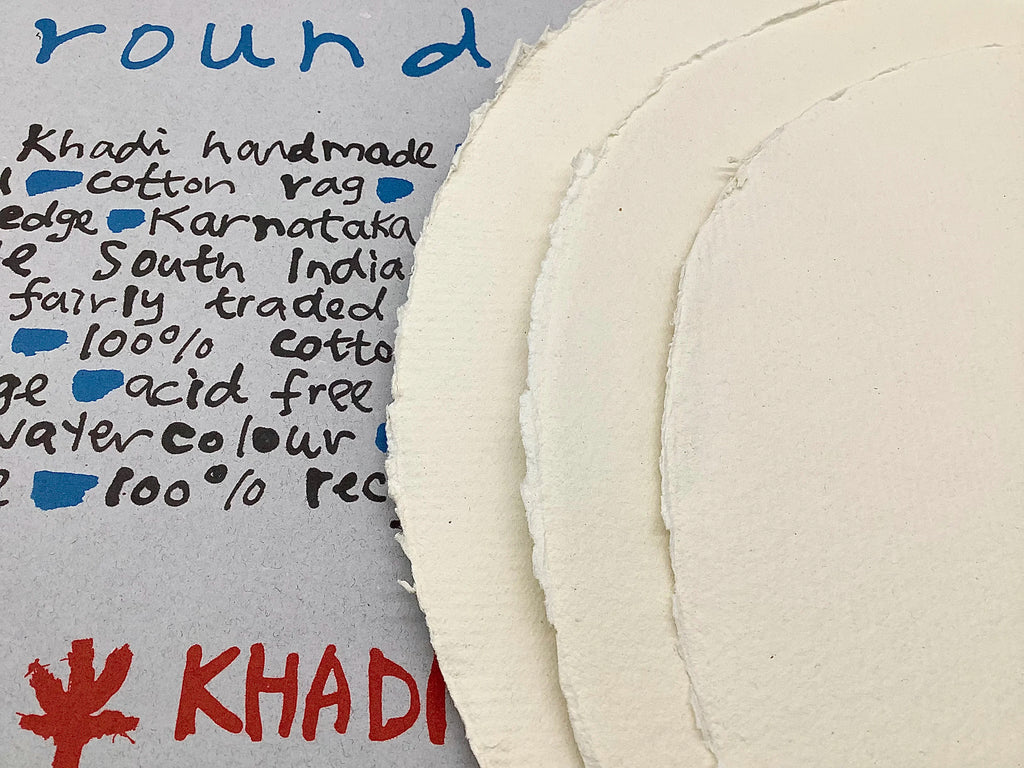 round
Khadi handmade
cotton rag
edge Karnataka
South India
fairly traded
100% cotto
ge acid free
watercolour
100% rec
KHADI